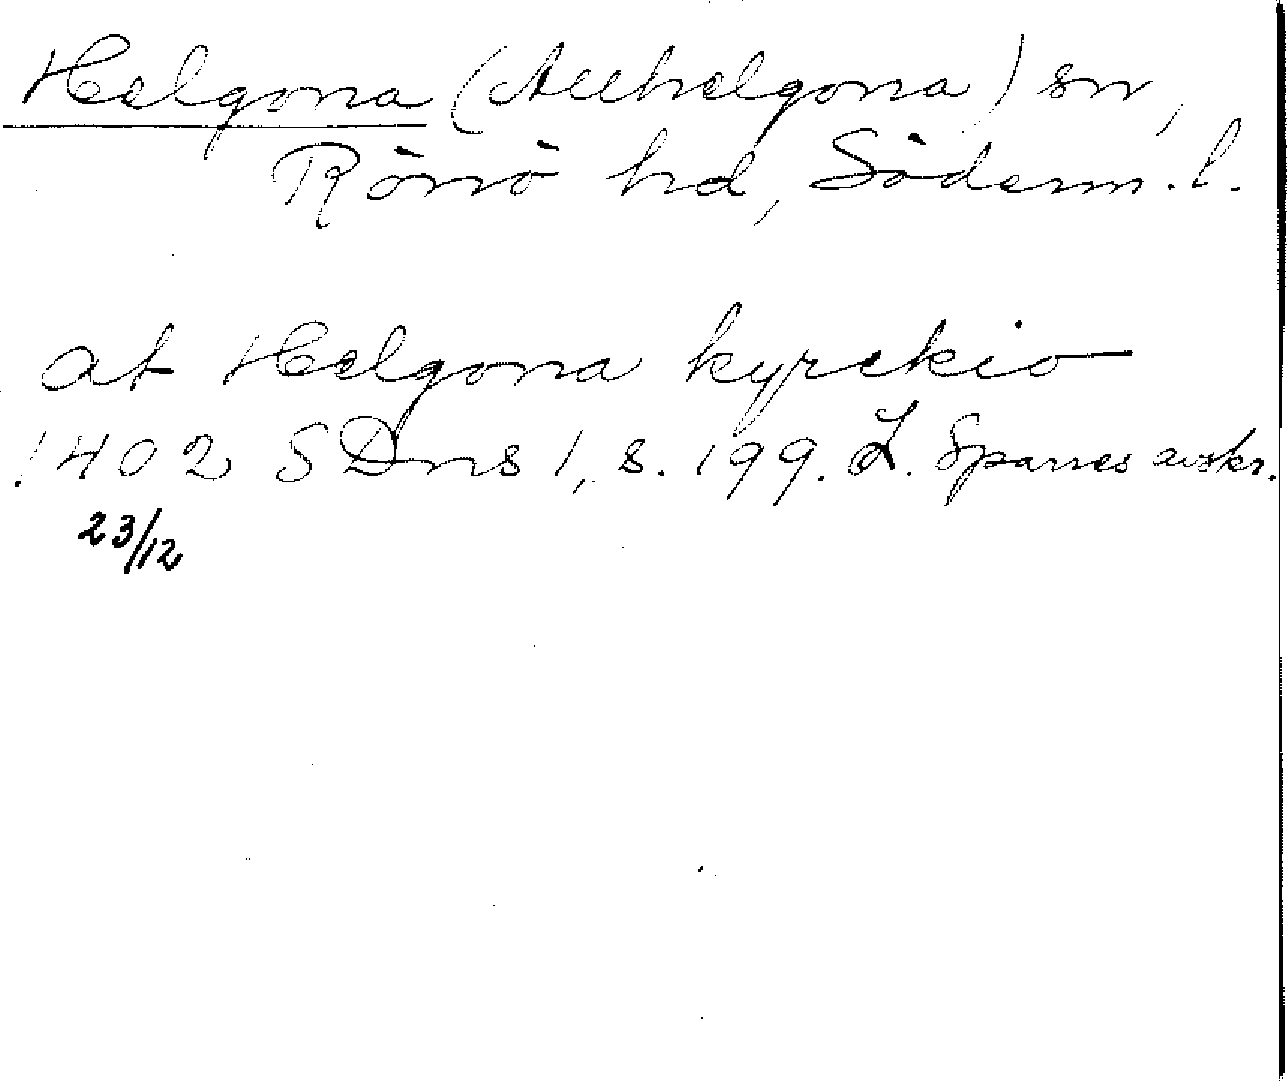 Helgona (Allhelgona) sn,
Rönö hd, Söderm. l.
at Helgona kyrckio
1402 SDns 1, s. 199. L. Sparres avskr.
23/12